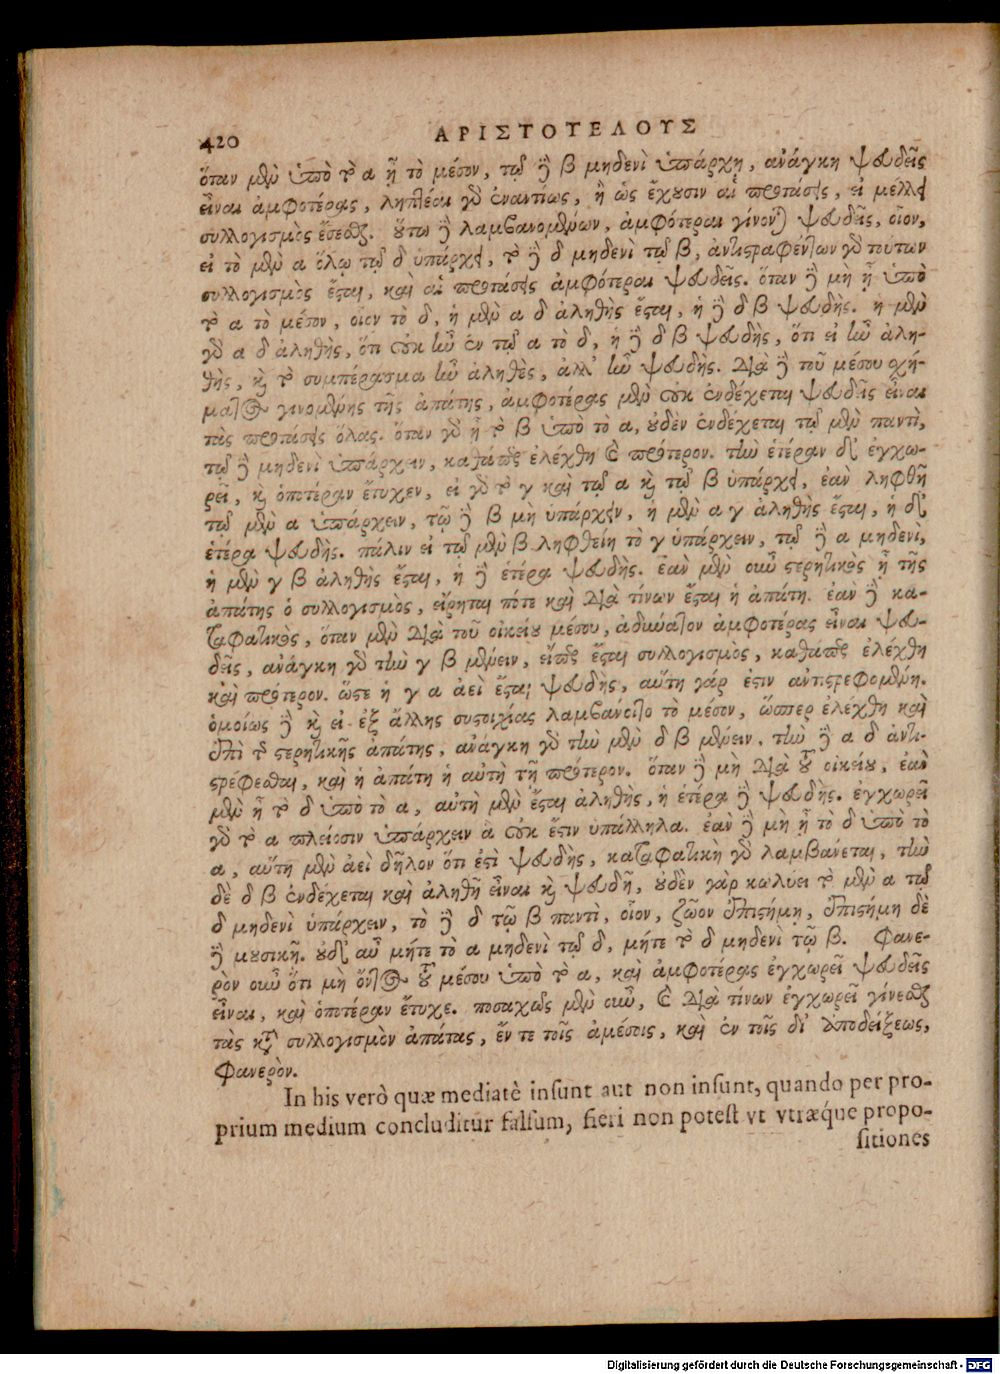 420 ΑΡΙΣΤΟΤΕΛΟΥΣ
ὅταν μὲν ὑπὸ τὸ α ᾖ τὸ μέσον, τῷ δὲ β μηδενὶ ὑπάρχῃ, ἀνάγκη ψευδεῖς
εἶναι ἀμφοτέρας, ληπτέαι γὸ ἐναντίως, ἢ ὡς ἔχουσιν αἱ προτάσεις, εἰ μέλλει
συλλογισμὸς ἔσεσθαι. οὕτω δὲ λαμβανομένων, ἀμφότεραι γίνονται ψευδεῖς, οἷον,
εἰ τὸ μὲν α ὅλῳ τῷ δ ὑπάρχει, τὸ δὲ δ μηδενὶ τῷ β, ἀντιστραφέντων γὸ τούτων
συλλογισμὸς ἔσται, καὶ αἱ προτάσεις ἀμφότεραι ψευδεῖς. ὅταν δὲ μὴ ᾖ ὑπὸ
τὸ α τὸ μέσον, οἷον τὸ δ, ἡ μὲν α δ ἀληθὴς ἔσται, ἡ δὲ δ β ψευδής. ἡ μὲν
γὸ α δ ἀληθὴς, ὅτι οὐκ ἦν ἐν τῷ α τὸ δ, ἡ δὲ δ β ψευδὴς, ὅτι εἰ ἦν ἀλη-
θὴς, καὶ τὸ συμπέρασμα ἦν ἀληθὲς, ἀλλ' ἦν ψευδής. Διὰ δὲ τοῦ μέσου σχή-
ματος γινομένης τῆς ἀπάτης, ἀμφοτέρας μὲν οὐκ ἐνδέχεται ψευδεῖς εἶναι
τὰς προτάσεις ὅλας. ὅταν γὸ ᾖ τὸ β ὑπὸ τὸ α, οὐδὲν ἐνδέχεται τῷ μὲν παντὶ,
τῷ δὲ μηδενὶ ὑπάρχειν, καθάπερ ἐλέχθη καὶ πρότερον. τὴν ἑτέραν δ' ἐγχω-
ρεῖ, καὶ ὁποτέραν ἔτυχεν, εἰ γὸ τὸ γ καὶ τῷ α καὶ τῷ β ὑπάρχει, ἐὰν ληφθῇ
τῷ μὲν α ὑπάρχειν, τῷ δὲ β μὴ ὑπάρχειν, ἡ μὲν α γ ἀληθὴς ἔσται, ἡ δ'
ἑτέρα ψευδής. πάλιν εἰ τῷ μὲν β ληφθείη τὸ γ ὑπάρχειν, τῷ δὲ α μηδενὶ,
ἡ μὲν γ β ἀληθὴς ἔσται, ἡ δὲ ἑτέρα ψευδής. ἐὰν μὲν οὖν στερητικὸς ᾖ τῆς
ἀπάτης ὁ συλλογισμὸς, εἴρηται πότε καὶ διὰ τίνων ἔσται ἡ ἀπάτη. ἐὰν δὲ κα-
ταφατικὸς, ὅταν μὲν διὰ τοῦ οἰκείου μέσου, ἀδύνατον ἀμφοτέρας εἶναι ψευ-
δεῖς, ἀνάγκη γὸ τὴν γ β μένειν, εἴπερ ἔσται συλλογισμὸς, καθάπερ ἐλέχθη
καὶ πρότερον. ὥστε ἡ γ α ἀεὶ ἔσται ψευδὴς, αὕτη γάρ ἐστιν ἀντιστρεφομένη.
ὁμοίως δὲ καὶ εἰ ἐξ ἄλλης συστοιχίας λαμβάνοιτο τὸ μέσον, ὥσπερ ἐλέχθη καὶ
ἐπὶ τῆς στερητικῆς ἀπάτης, ἀνάγκη γὸ τὴν μὲν δ β μένειν, τὴν δὲ α δ ἀντι-
στρέφεσθαι, καὶ ἡ ἀπάτη ἡ αὐτὴ τῇ πρότερον. ὅταν δὲ μὴ διὰ τοῦ οἰκείου, ἐὰν
μὲν ᾖ τὸ δ ὑπὸ τὸ α, αὐτὴ μὲν ἔσται ἀληθὴς, ἡ ἑτέρα δὲ ψευδής. ἐγχωρεῖ
γὸ τὸ α πλείοσιν ὑπάρχειν ἃ οὐκ ἔστιν ὑπάλληλα. ἐὰν δὲ μὴ ᾖ τὸ δ ὑπὸ τὸ
α, αὕτη μὲν ἀεὶ δῆλον ὅτι ἐστὶ ψευδὴς, καταφατικὴ γὸ λαμβάνεται, τὴν
δὲ δ β ἐνδέχεται καὶ ἀληθῆ εἶναι καὶ ψευδῆ, οὐδὲν γὰρ κωλύει τὸ μὲν α τῷ
δ μηδενὶ ὑπάρχειν, τὸ δὲ δ τῷ β παντὶ, οἷον, ζῷον ἐπιστήμῃ, ἐπιστήμη δὲ
δὲ μουσικῇ. οὐδ' αὖ μήτε τὸ α μηδενὶ τῷ δ, μήτε τὸ δ μηδενὶ τῷ β. Φανε-
ρὸν οὖν ὅτι μὴ ὄντος τοῦ μέσου ὑπὸ τὸ α, καὶ ἀμφοτέρας ἐγχωρεῖ ψευδεῖς
εἶναι, καὶ ὁποτέραν ἔτυχε. ποσαχῶς μὲν οὖν, καὶ διὰ τίνων ἐγχωρεῖ γίνεσθαι
τὰς κατὰ συλλογισμὸν ἀπάτας, ἔν τε τοῖς ἀμέσοις, καὶ ἐν τοῖς δι' ἀποδείξεως,
φανερὸν.
In his verò quæ mediatè insunt aut non insunt, quando per pro-
prium medium concluditur falsum, fieri non potest vt vtræque propo-
sitiones
Digitalisierung gefördert durch die Deutsche Forschungsgemeinschaft - DFG